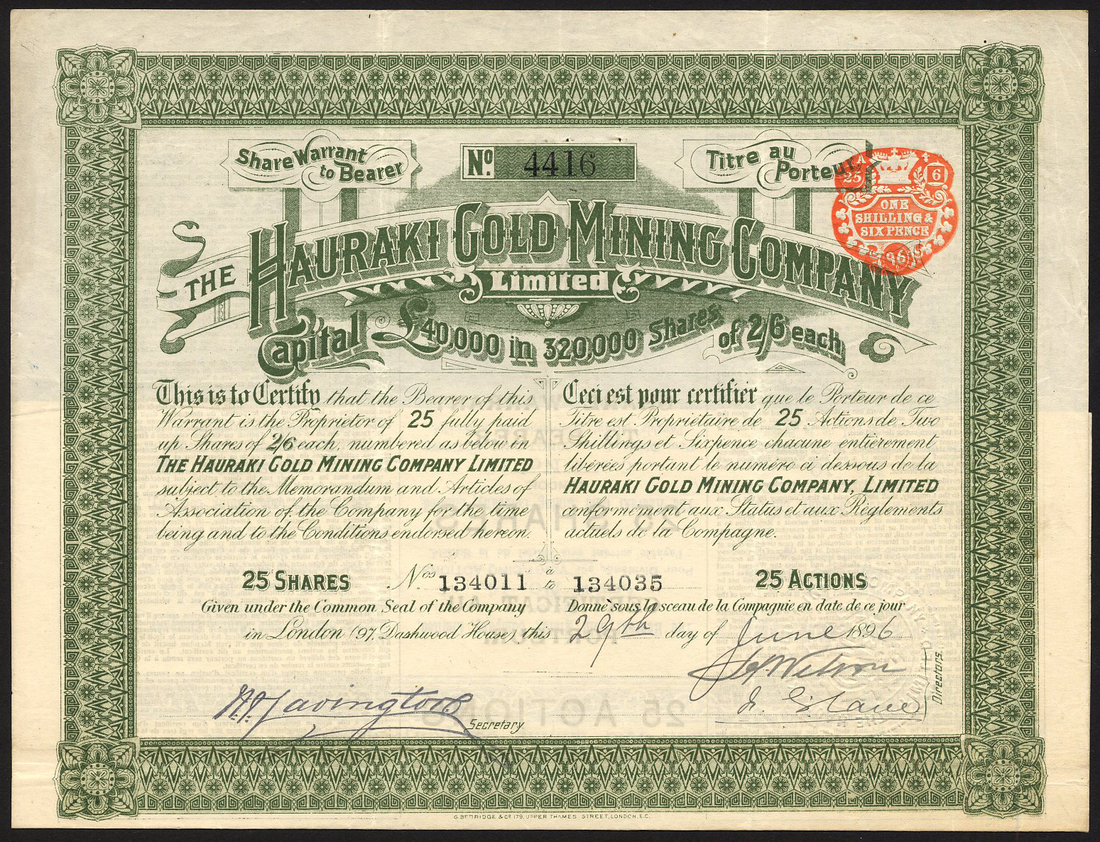 Share Warrant to Bearer
No. 4416
Titre au Porteur
A 4
25 6
ONE
SHILLING &
SIXPENCE
96
THE HAURAKI GOLD MINING COMPANY
Limited
Capital £40,000 in 320,000 Shares of 2/6 each
This is to Certify that the Bearer of this
Warrant is the Proprietor of 25 fully paid
up Shares of 2/6 each, numbered as below in
THE HAURAKI GOLD MINING COMPANY LIMITED
subject to the Memorandum and Articles of
Association of the Company for the time
being and to the Conditions endorsed hereon.
Ceci est pour certifier que le Porteur de ce
Titre est Propriétaire de 25 Actions de Two
Shillings et Sixpence chacune entièrement
libérées portant le numéro ci dessous de la
HAURAKI GOLD MINING COMPANY, LIMITED
conformément aux Status et aux Règlements
actuels de la Compagnie.
25 SHARES Nos 134011 à to 134035 25 ACTIONS
Given under the Common Seal of the Company Donné sous le sceau de la Compagnie en date de ce jour
in London (97, Dashwood House) this 29th day of June 1896
Directors.
Secretary
G. BETTRIDGE & CO 179, UPPER THAMES STREET, LONDON, E.C.